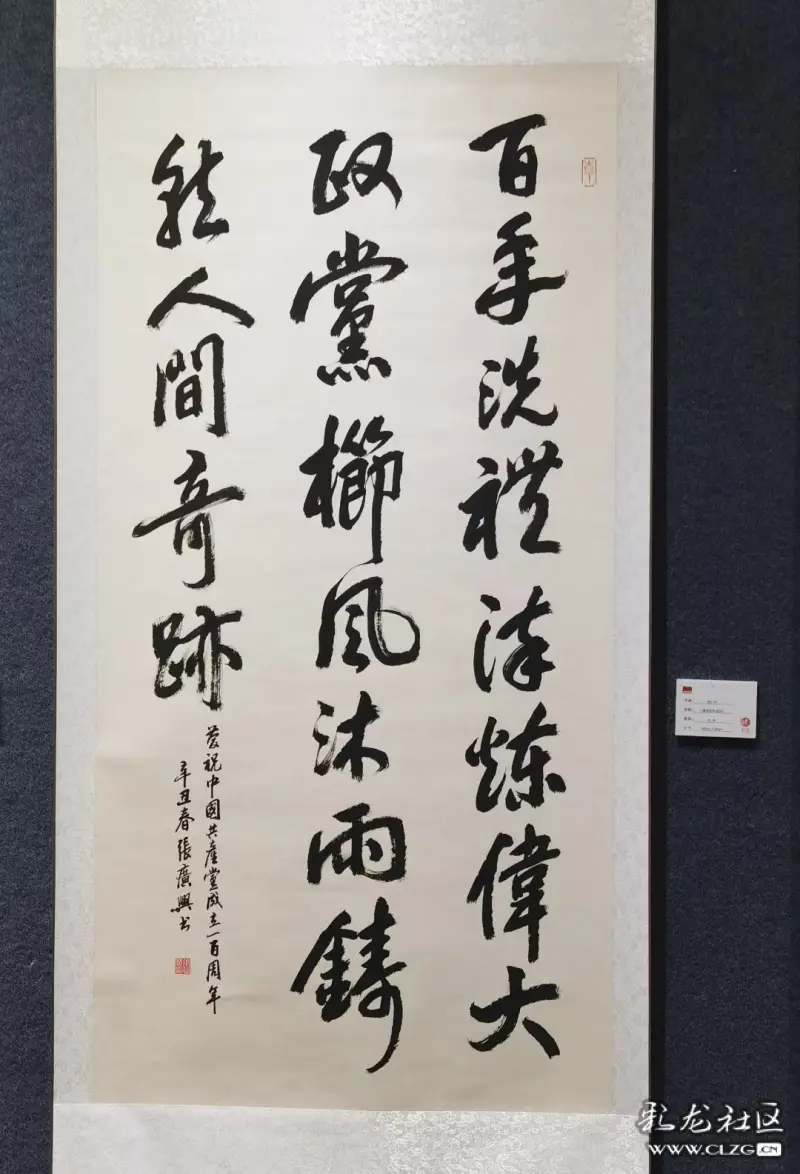 百年洗禮淬煉偉大
政黨櫛風沐雨鑄
就人間奇跡
慶祝中國共產黨成立一百周年
辛丑春張廣興书
彩龙社区
WWW.CLZG.CN